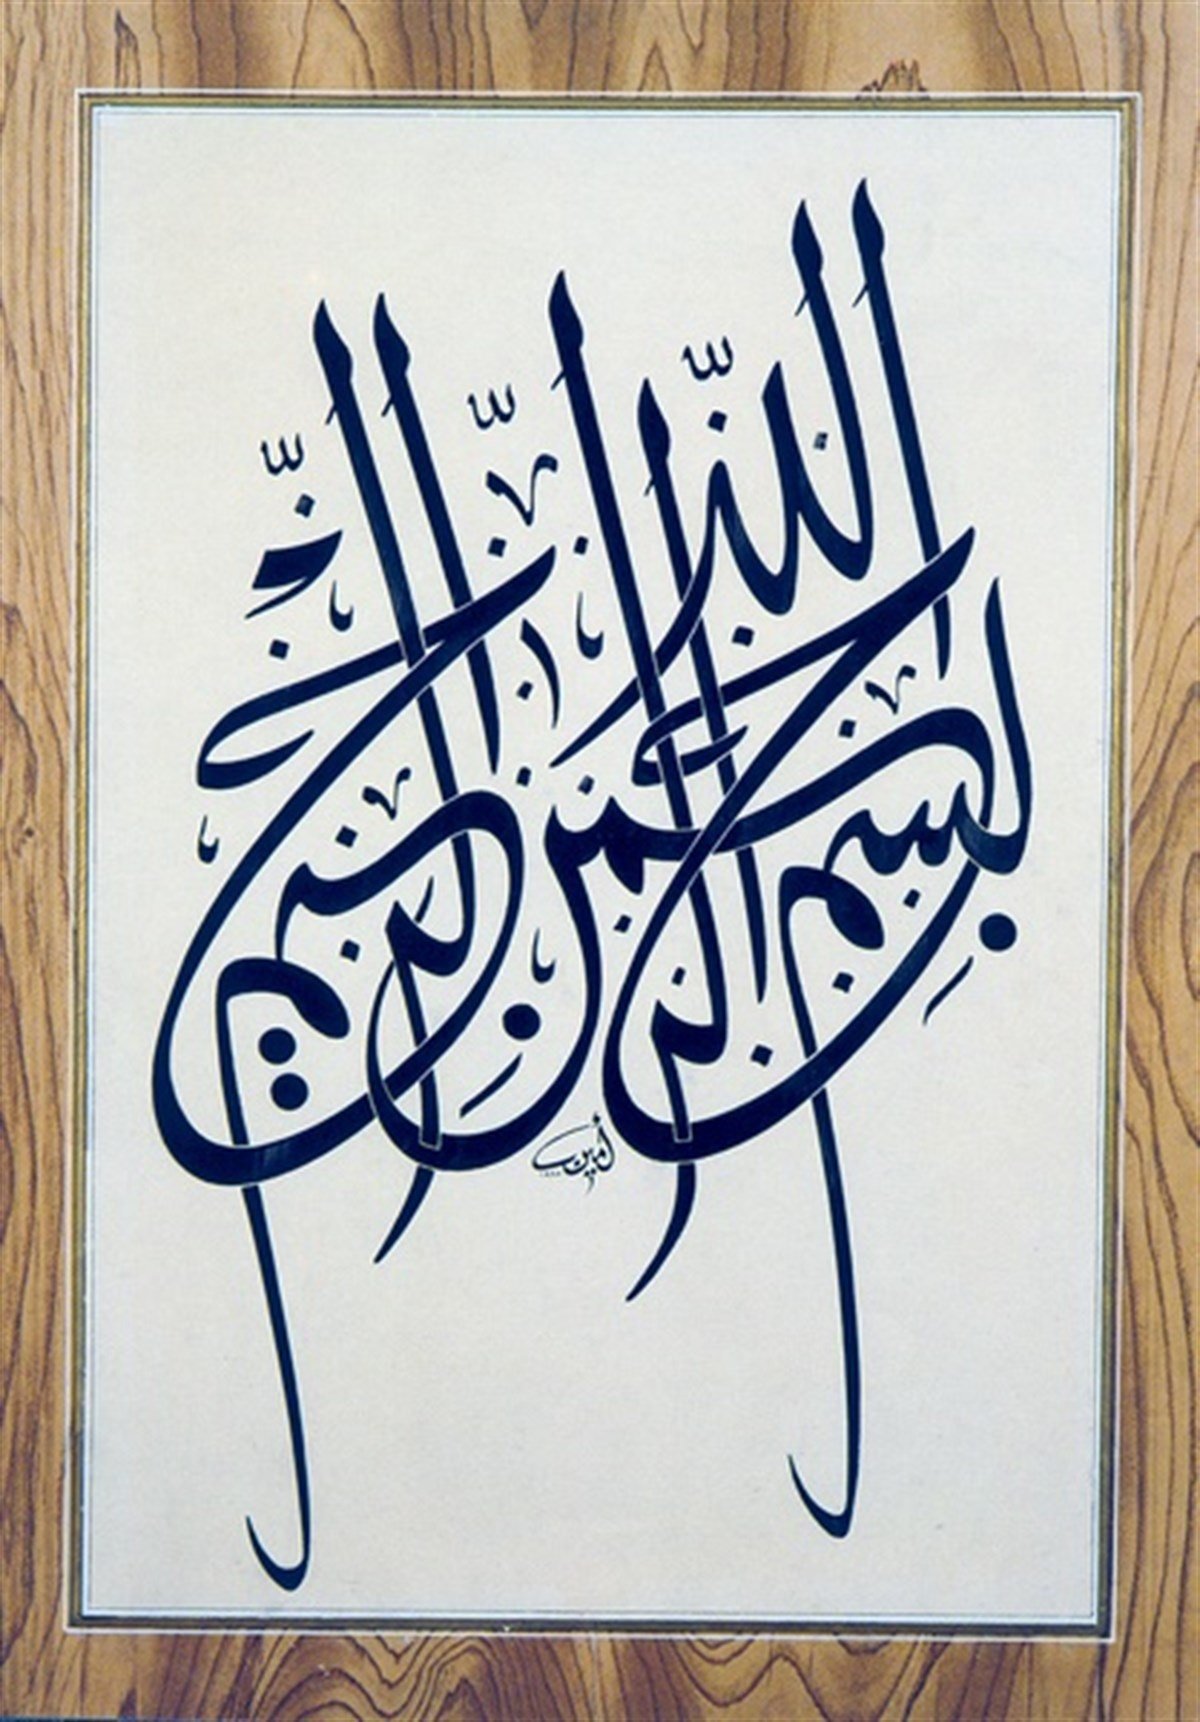 بسم الله الرحمن الرحيم
أمين